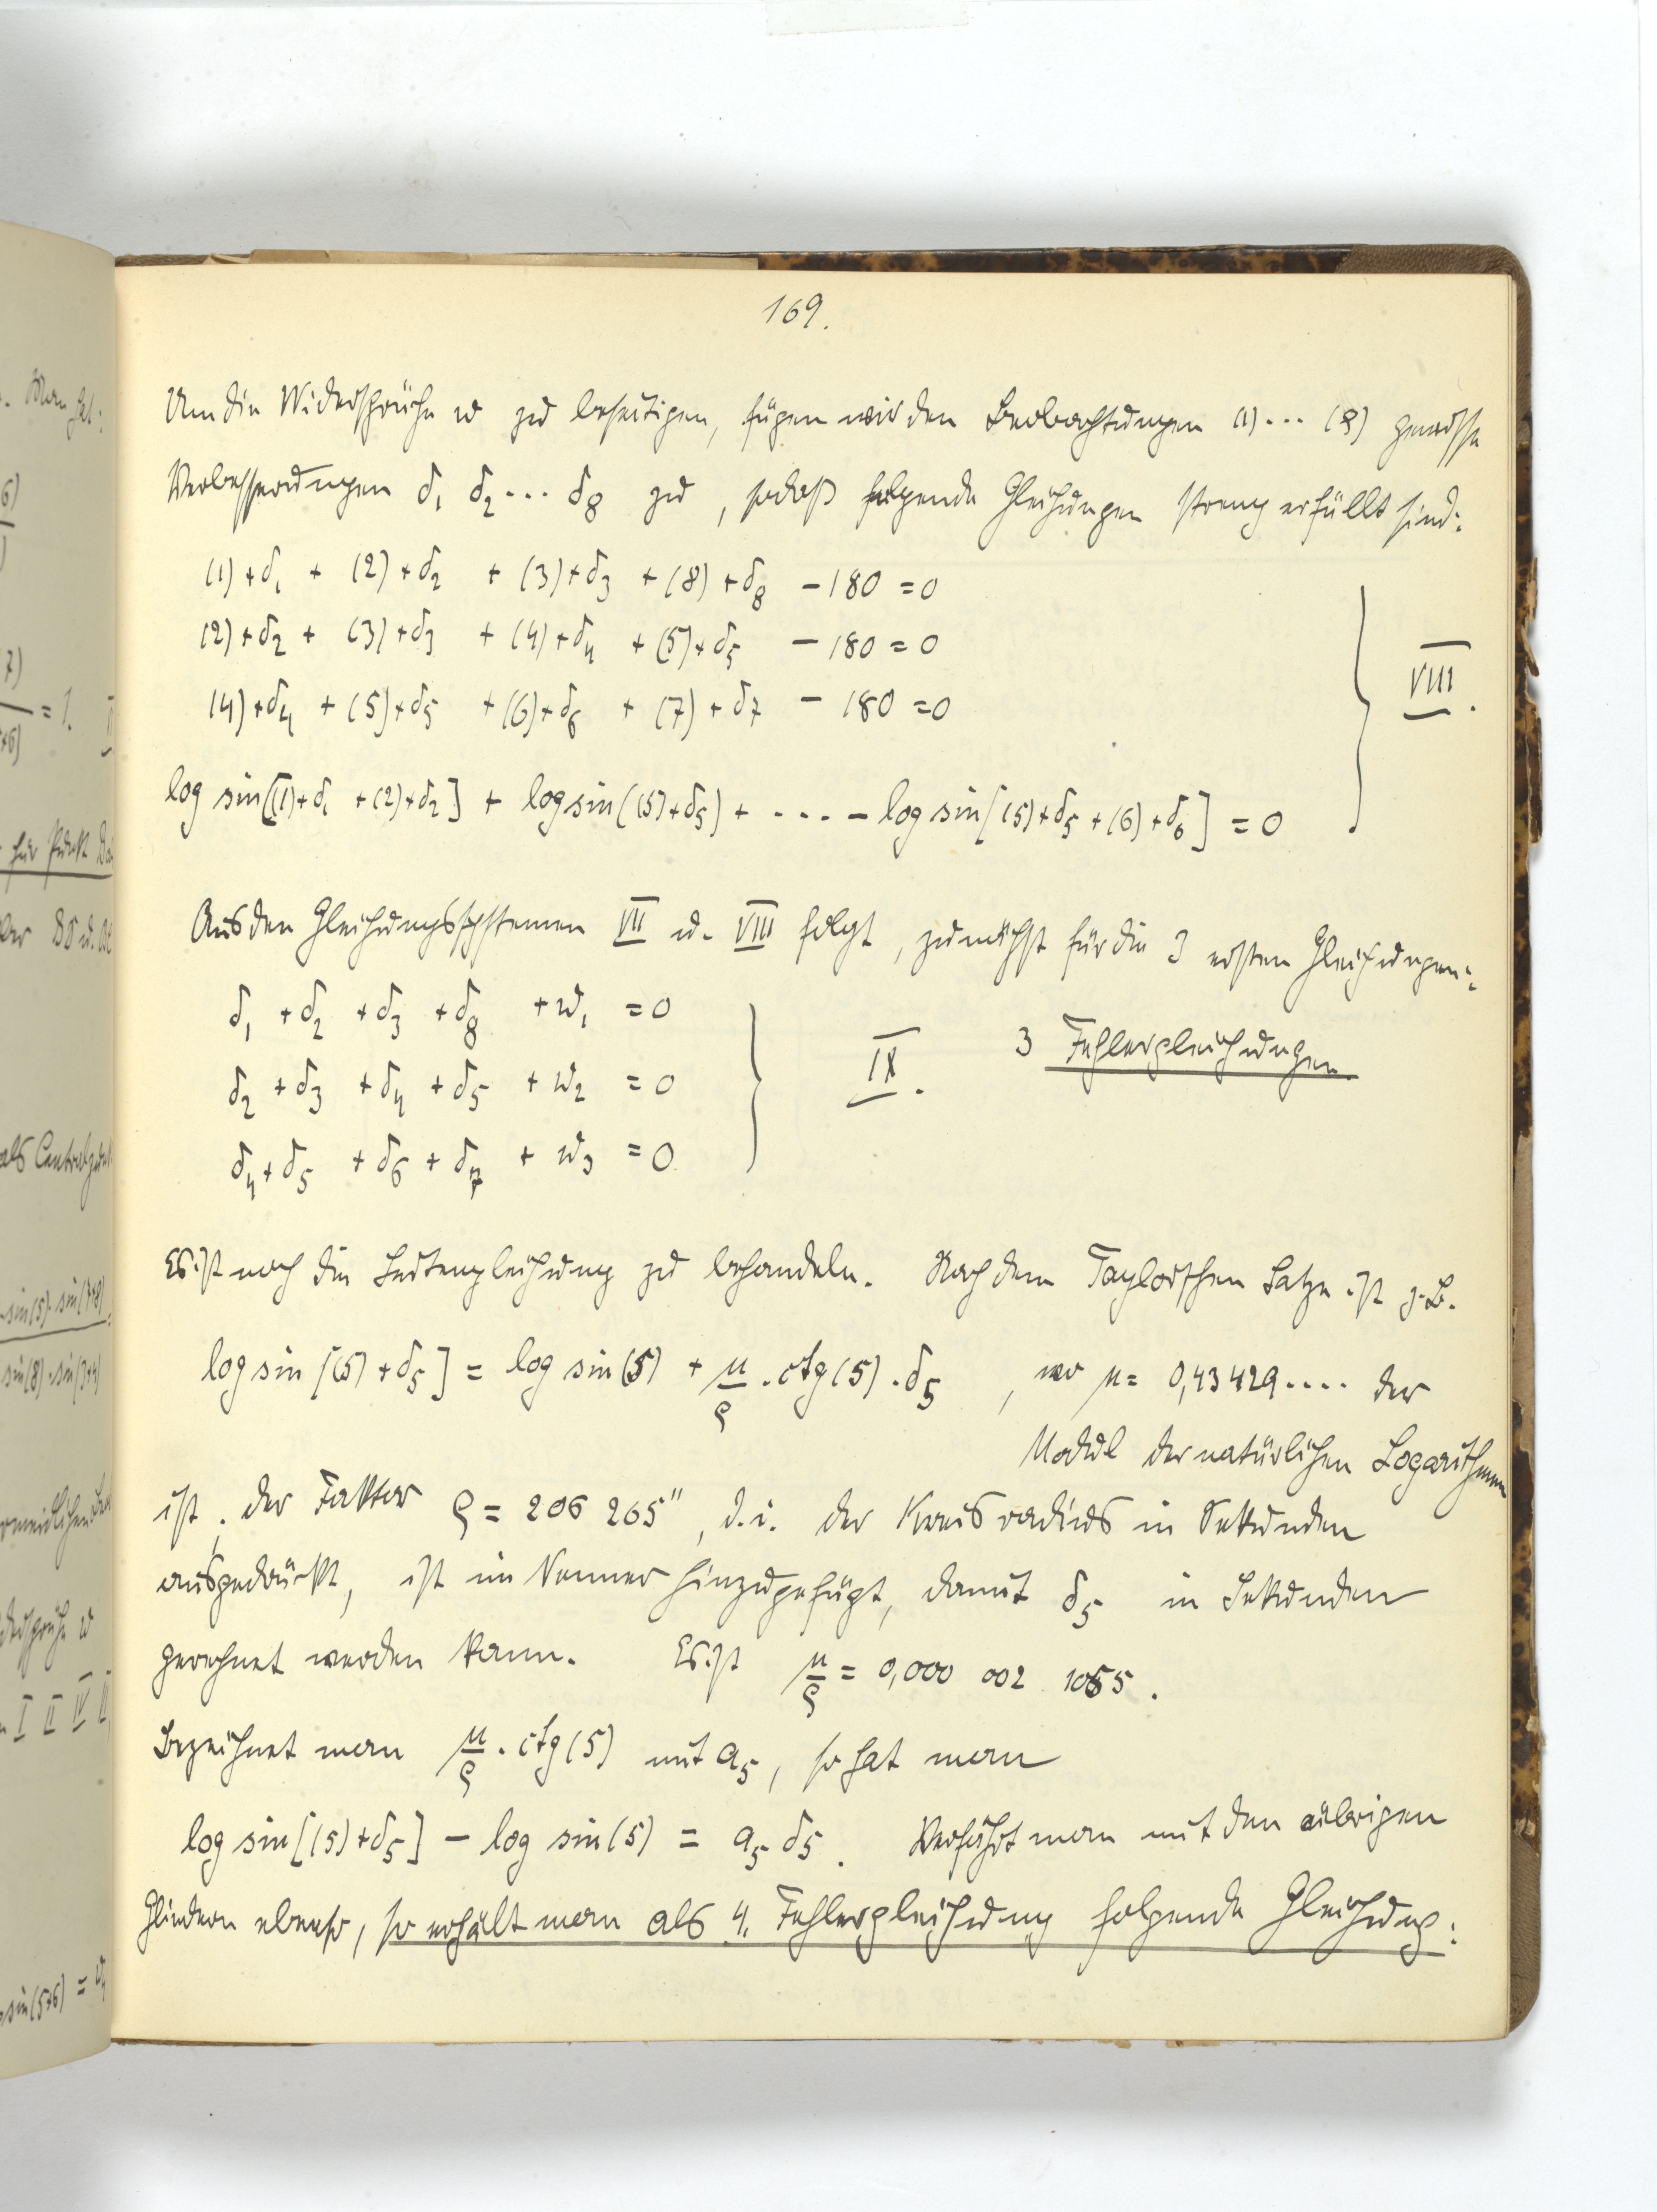 169.
Um die Widersprüche w zu beseitigen, fügen wir den Beobachtungen (1) ... (8) gewisse
Verbesserungen δ₁ δ₂ ... δ₈ zu, sodaß folgende Gleichungen streng erfüllt sind:
(1)+δ₁ + (2)+δ₂ + (3)+δ₃ + (8)+δ₈ − 180 = 0
(2)+δ₂ + (3)+δ₃ + (4)+δ₄ + (5)+δ₅ − 180 = 0
(4)+δ₄ + (5)+δ₅ + (6)+δ₆ + (7)+δ₇ − 180 = 0
VIII.
log sin[(1)+δ₁ + (2)+δ₂] + log sin((5)+δ₅) + .... − log sin[(5)+δ₅ + (6)+δ₆] = 0
Aus den Gleichungssystemen VII u. VIII folgt, zunächst für die 3 ersten Gleichungen:
δ₁ + δ₂ + δ₃ + δ₈ + w₁ = 0
δ₂ + δ₃ + δ₄ + δ₅ + w₂ = 0
δ₄ + δ₅ + δ₆ + δ₇ + w₃ = 0
IX. 3 Fehlergleichungen.
Es ist noch die Seitengleichung zu behandeln. Nach dem Taylorschen Satze ist z.B.
log sin [(5) + δ₅] = log sin (5) + μ/ϱ . ctg (5) . δ₅ , wo μ = 0,43429.... der
Modul der natürlichen Logarithmen
ist; der Faktor ϱ = 206 265", d.i. der Kreisradius in Sekunden
ausgedrückt, ist im Nenner hinzugefügt, damit δ₅ in Sekunden
gerechnet werden kann. Es ist μ/ϱ = 0,000 002 1055.
Bezeichnet man μ/ϱ . ctg (5) mit a₅, so hat man
log sin [(5)+δ₅] − log sin (5) = a₅ δ₅. Verfährt man mit den übrigen
Gliedern ebenso, so erhält man als 4. Fehlergleichung folgende Gleichung: